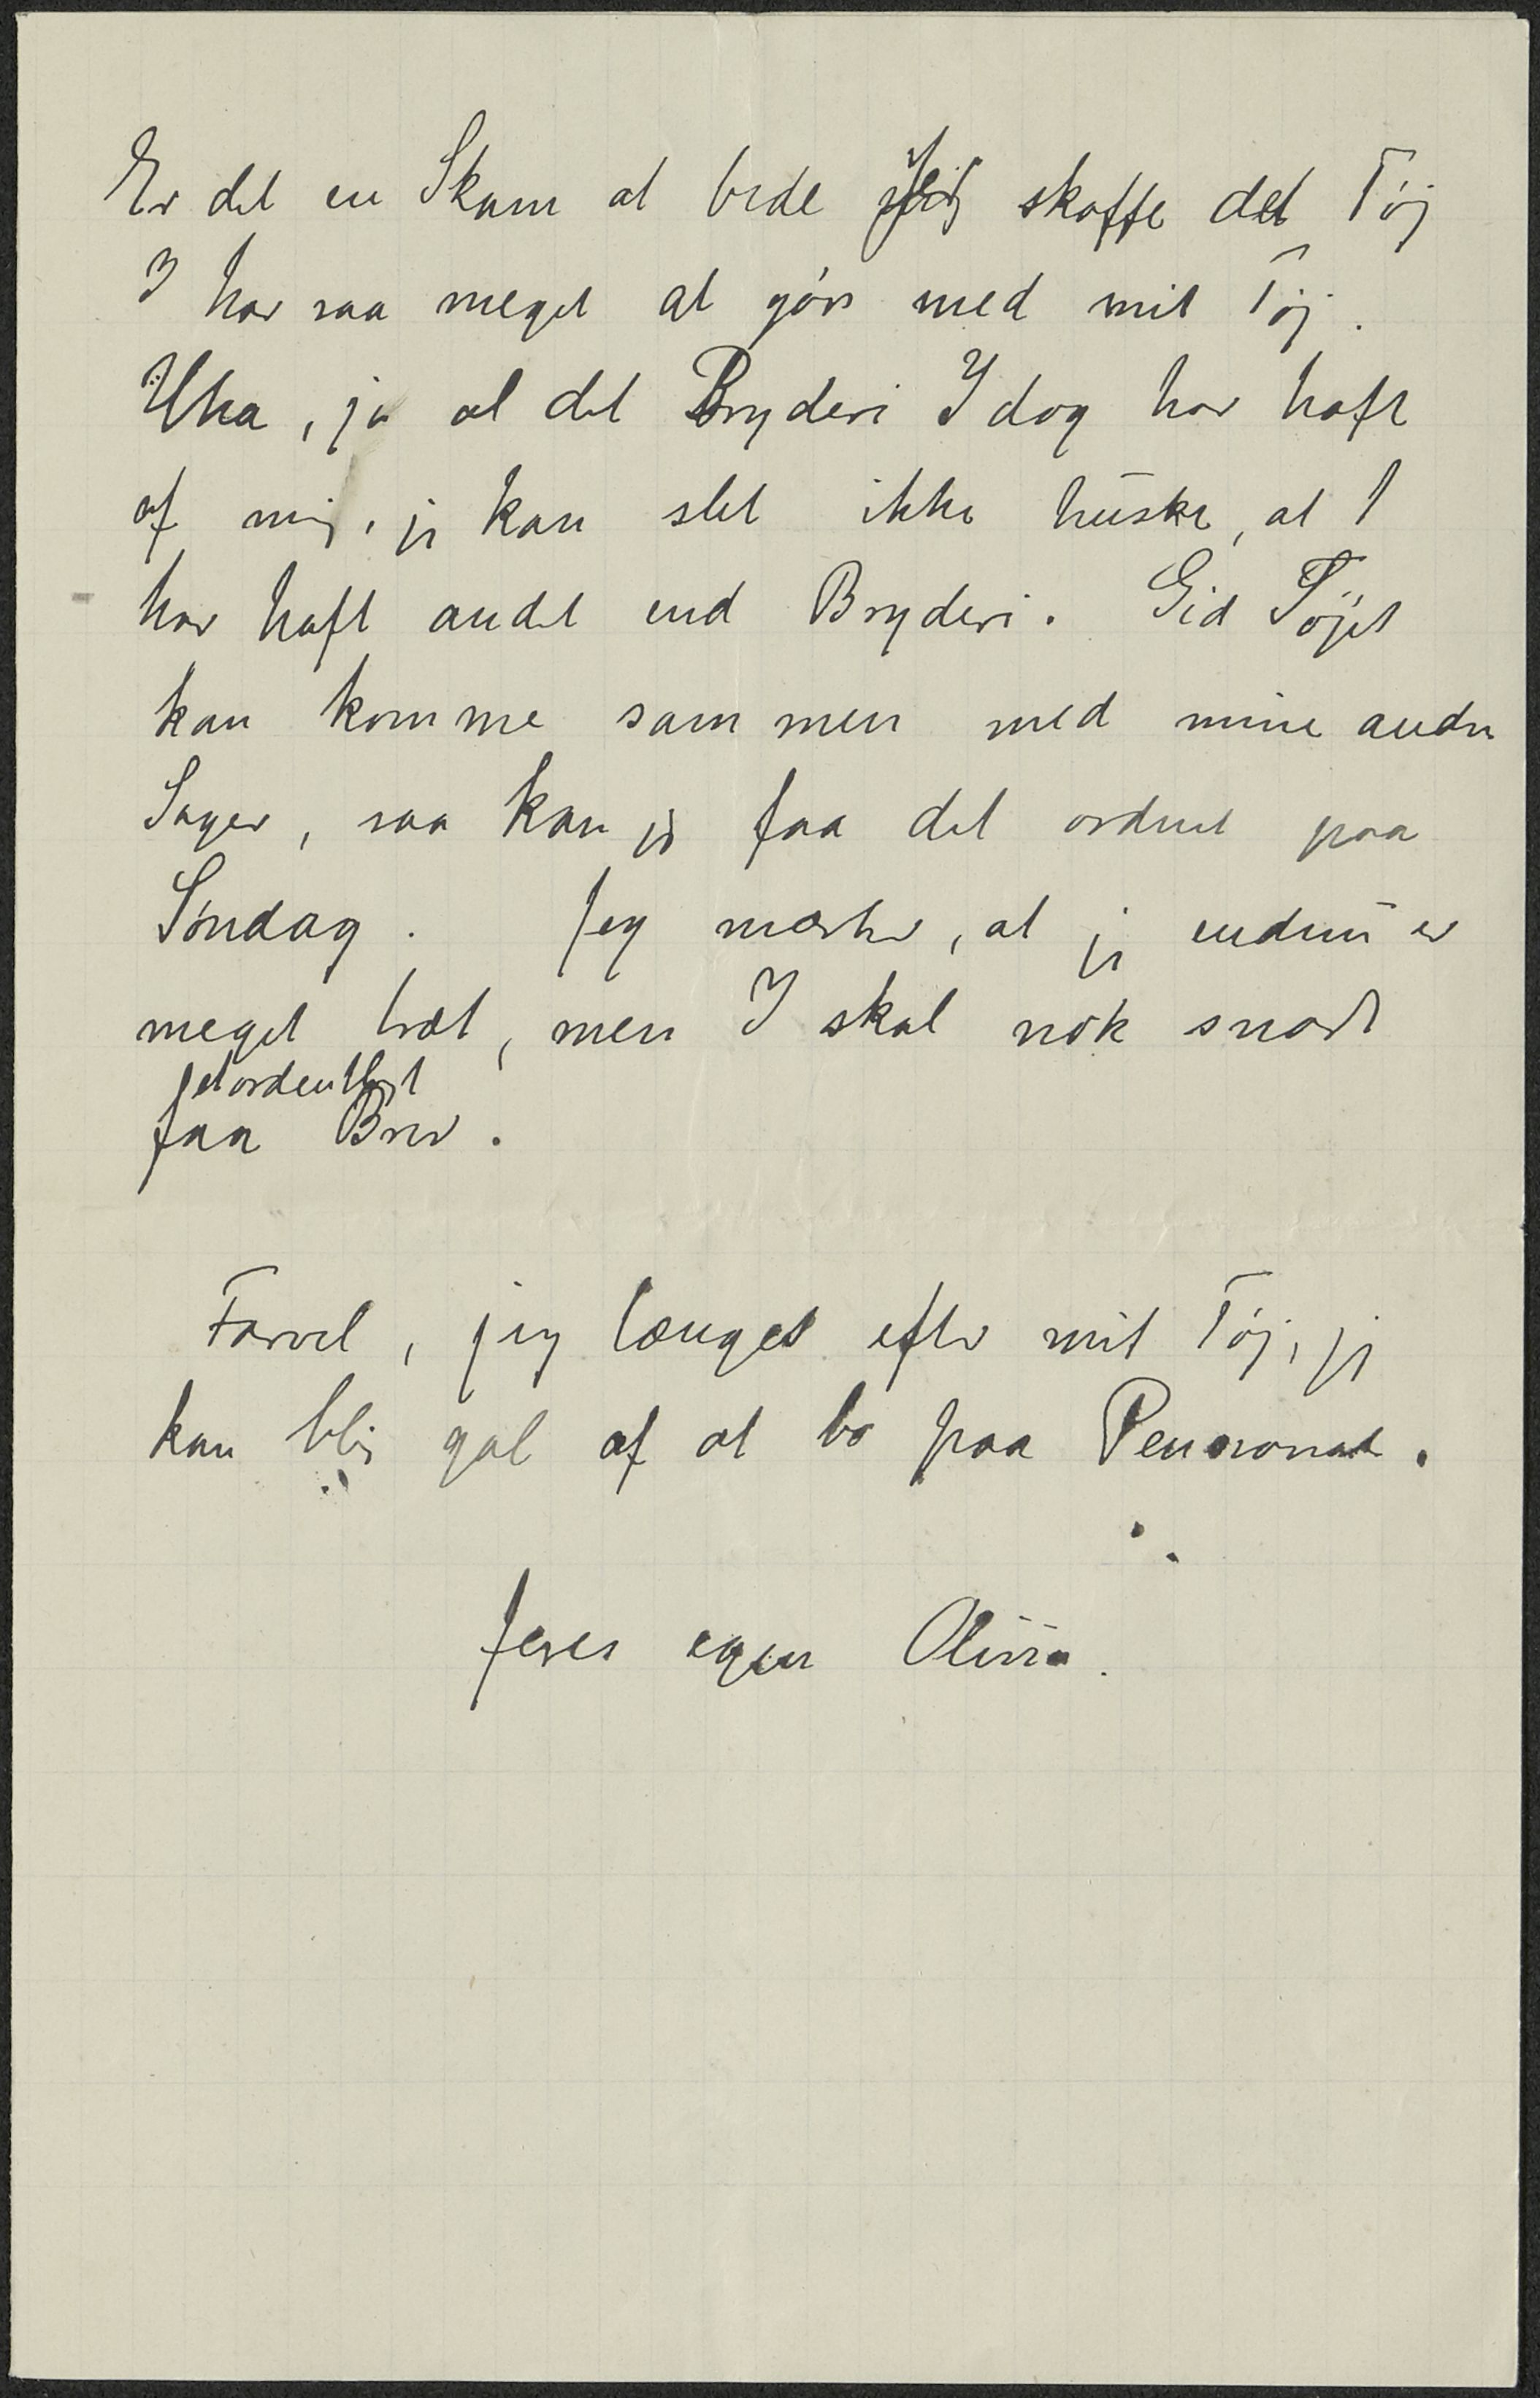 Er det en Skam at bede Jer skaffe det Tøj
I har saa meget at gøre med mit Tøj.
Uha, ja al det Bryderi I dog har haft
af mig, jeg kan slet ikke huske, at I
har haft andet end Bryderi. Gid Tøjet
kan komme sammen med mine andre
Sager, saa kan jeg faa det ordnet paa
Søndag. Jeg mærker, at jeg endnu er
meget træt, men I skal nok snart
et ordentligt
faa Brev.
Farvel, jeg længes efter mit Tøj, jeg
kan bli gal af at bo paa Pensionat.
Jeres egen Olivia.